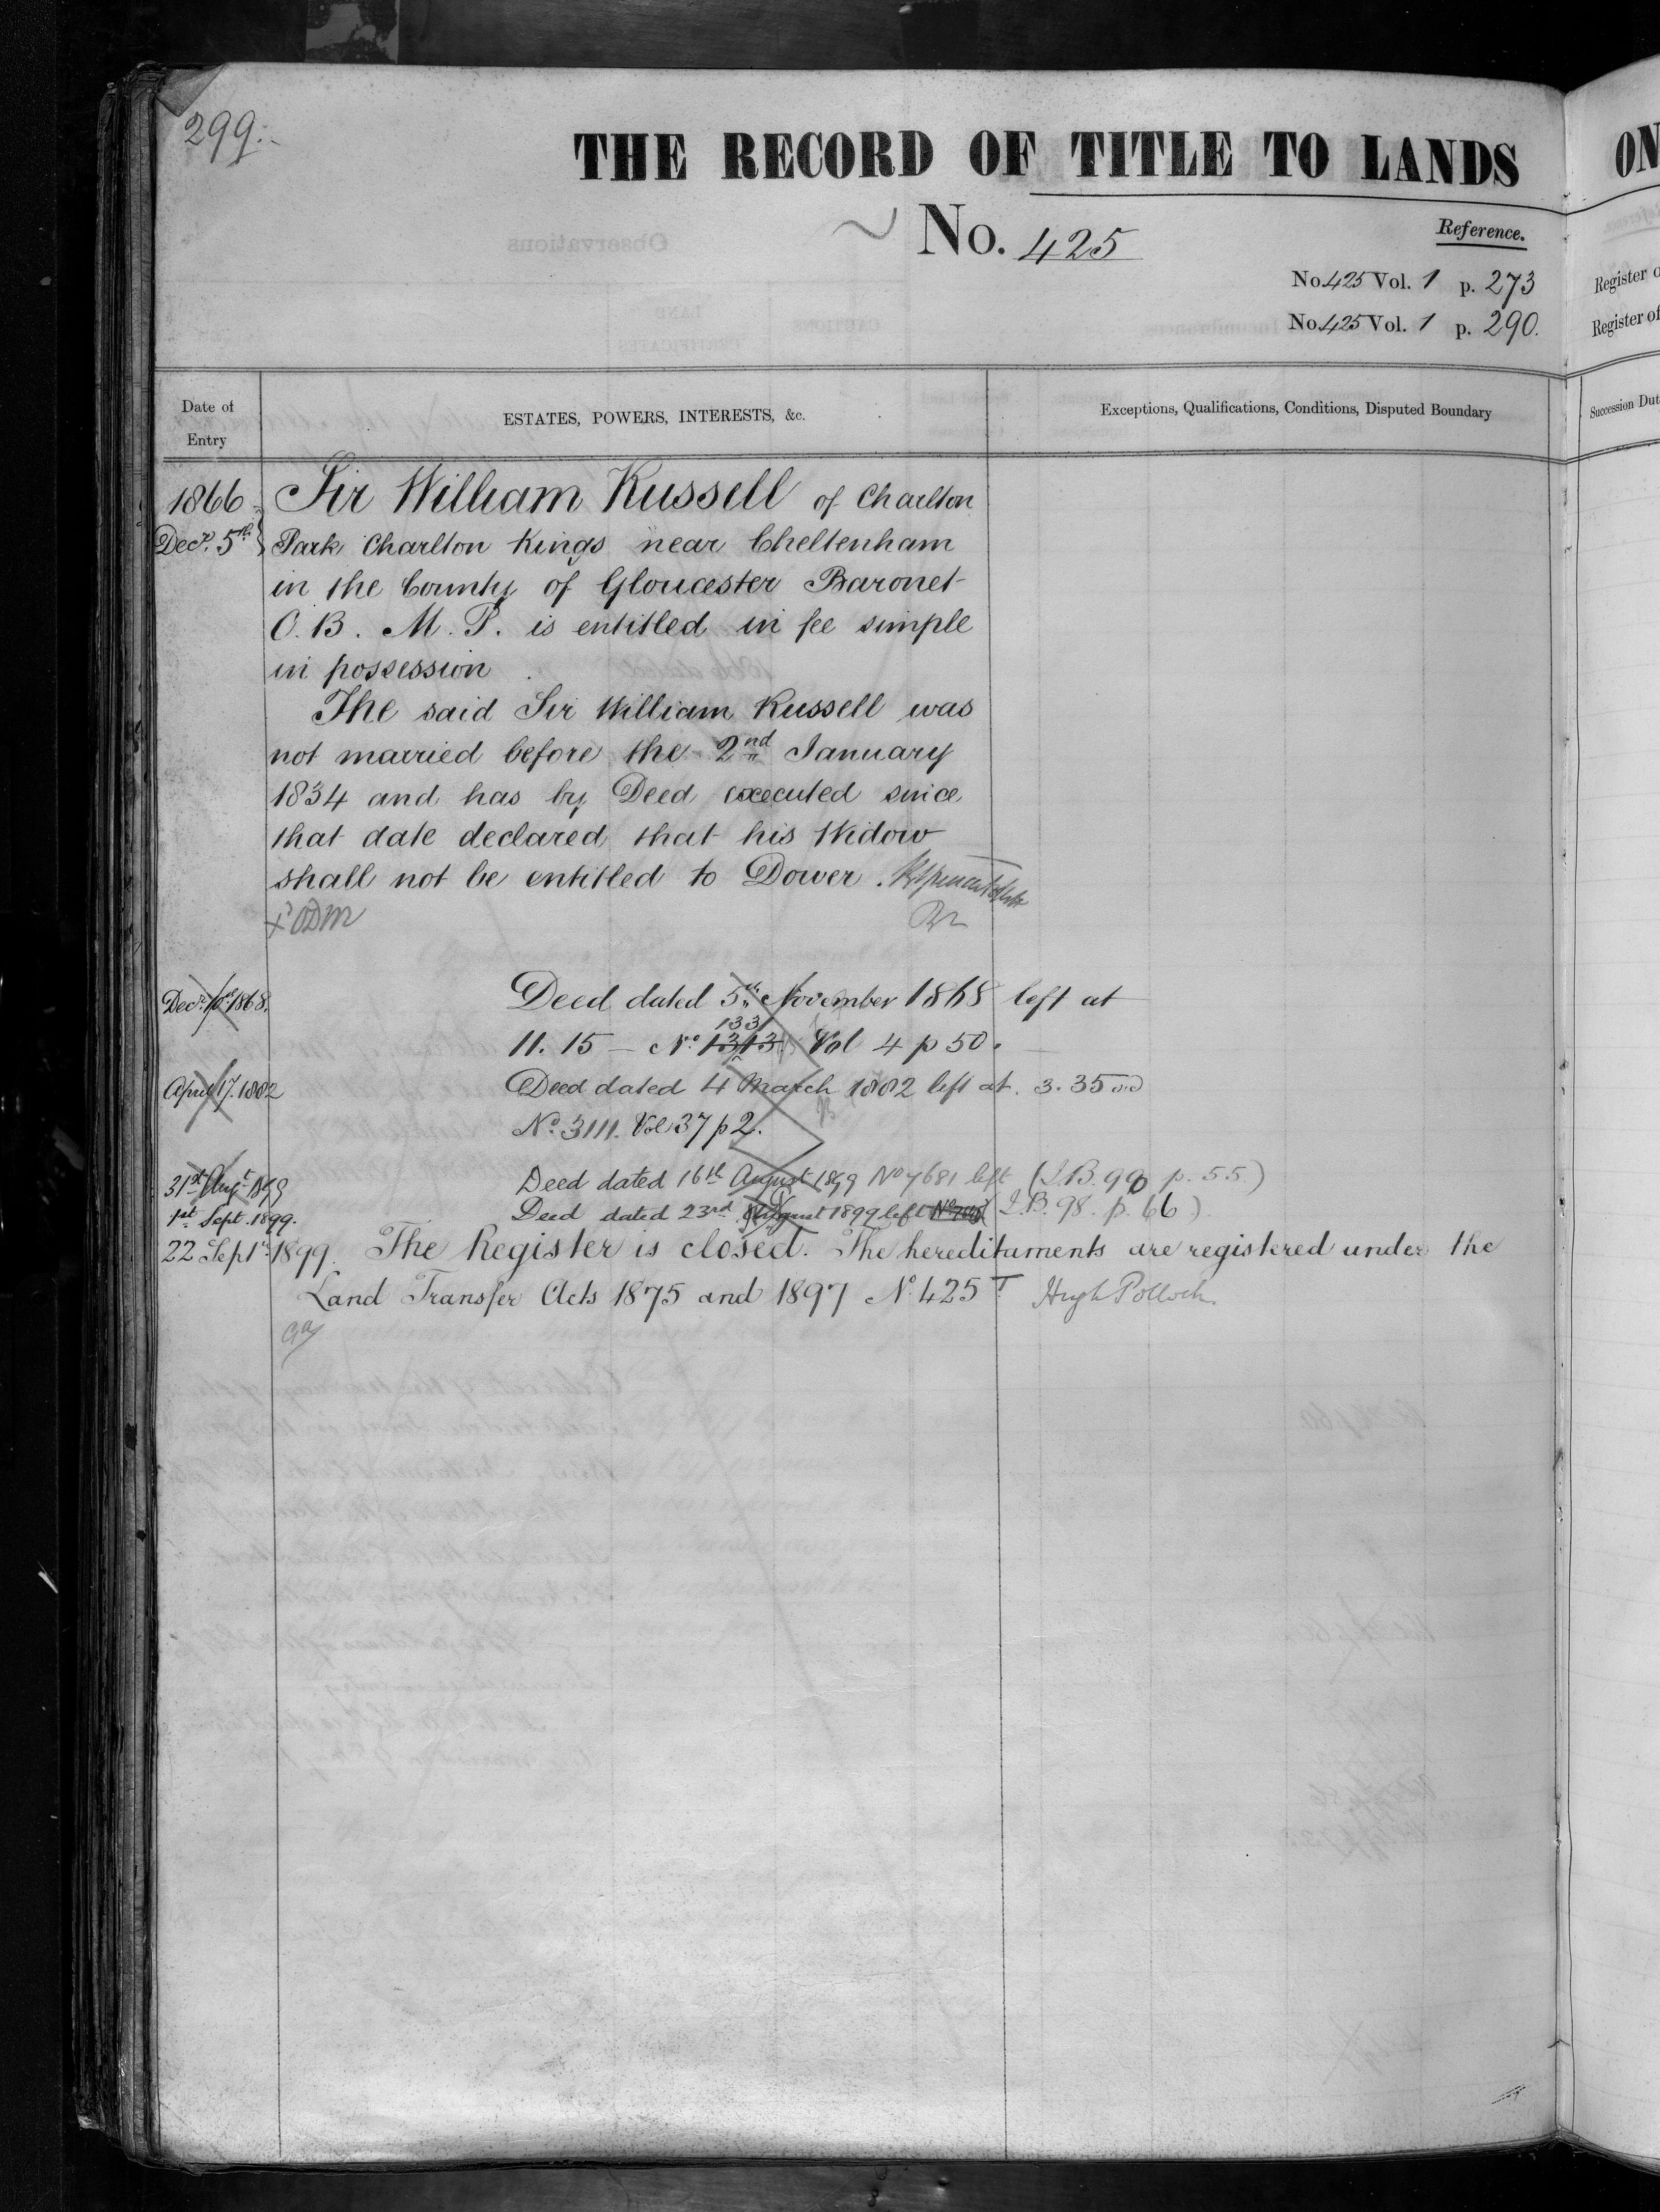 299.
THE RECORD OF TITLE TO LANDS
No. 425
Reference.
No 425 Vol. 1 p. 273
No 425 Vol. 1 p. 290.
Date of
Entry
ESTATES, POWERS, INTERESTS, &c.
Exceptions, Qualifications, Conditions, Disputed Boundary
1866
Decr. 5th
Sir William Russell of Charlton
Park Charlton Kings near Cheltenham
in the County of Gloucester Baronet
C. B. M. P. is entitled in fee simple
in possession
The said Sir William Russell was
not married before the 2nd January
1834 and has by Deed executed since
that date declared that his Widow
shall not be entitled to Dower.
Decr 10th 1868. Deed dated 5th November 1868 left at
1331
11. 15 – No. 1313. Vol 4 p 50.
April 17. 1882 Deed dated 4 March 1882 left at 3.35
No. 3111. Vol 37 p 2.
31st Augt 1899 Deed dated 16th August 1899 No 7681 left (I.B. 98 p. 55.)
1st Sept. 1899. Deed dated 23rd August 1899 left I.B. 98. p. 66)
22 Septr 1899. The Register is closed. The hereditaments are registered under the
Land Transfer Acts 1875 and 1897 No. 425T. Hugh Pollock
ON
Register o
Register of
Succession Dut